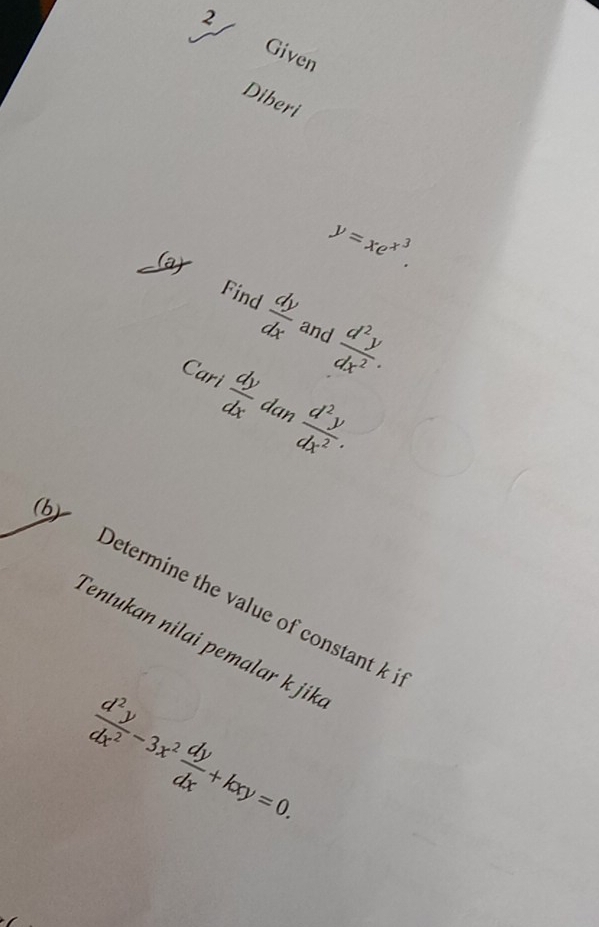 2
Given
Diberi
y = xeˣ³.
(a)
Find dy/dx and d²y/dx².
Cari dy/dx dan d²y/dx².
(b)
Determine the value of constant k if
Tentukan nilai pemalar k jika
d²y/dx² − 3x² dy/dx + kxy = 0.